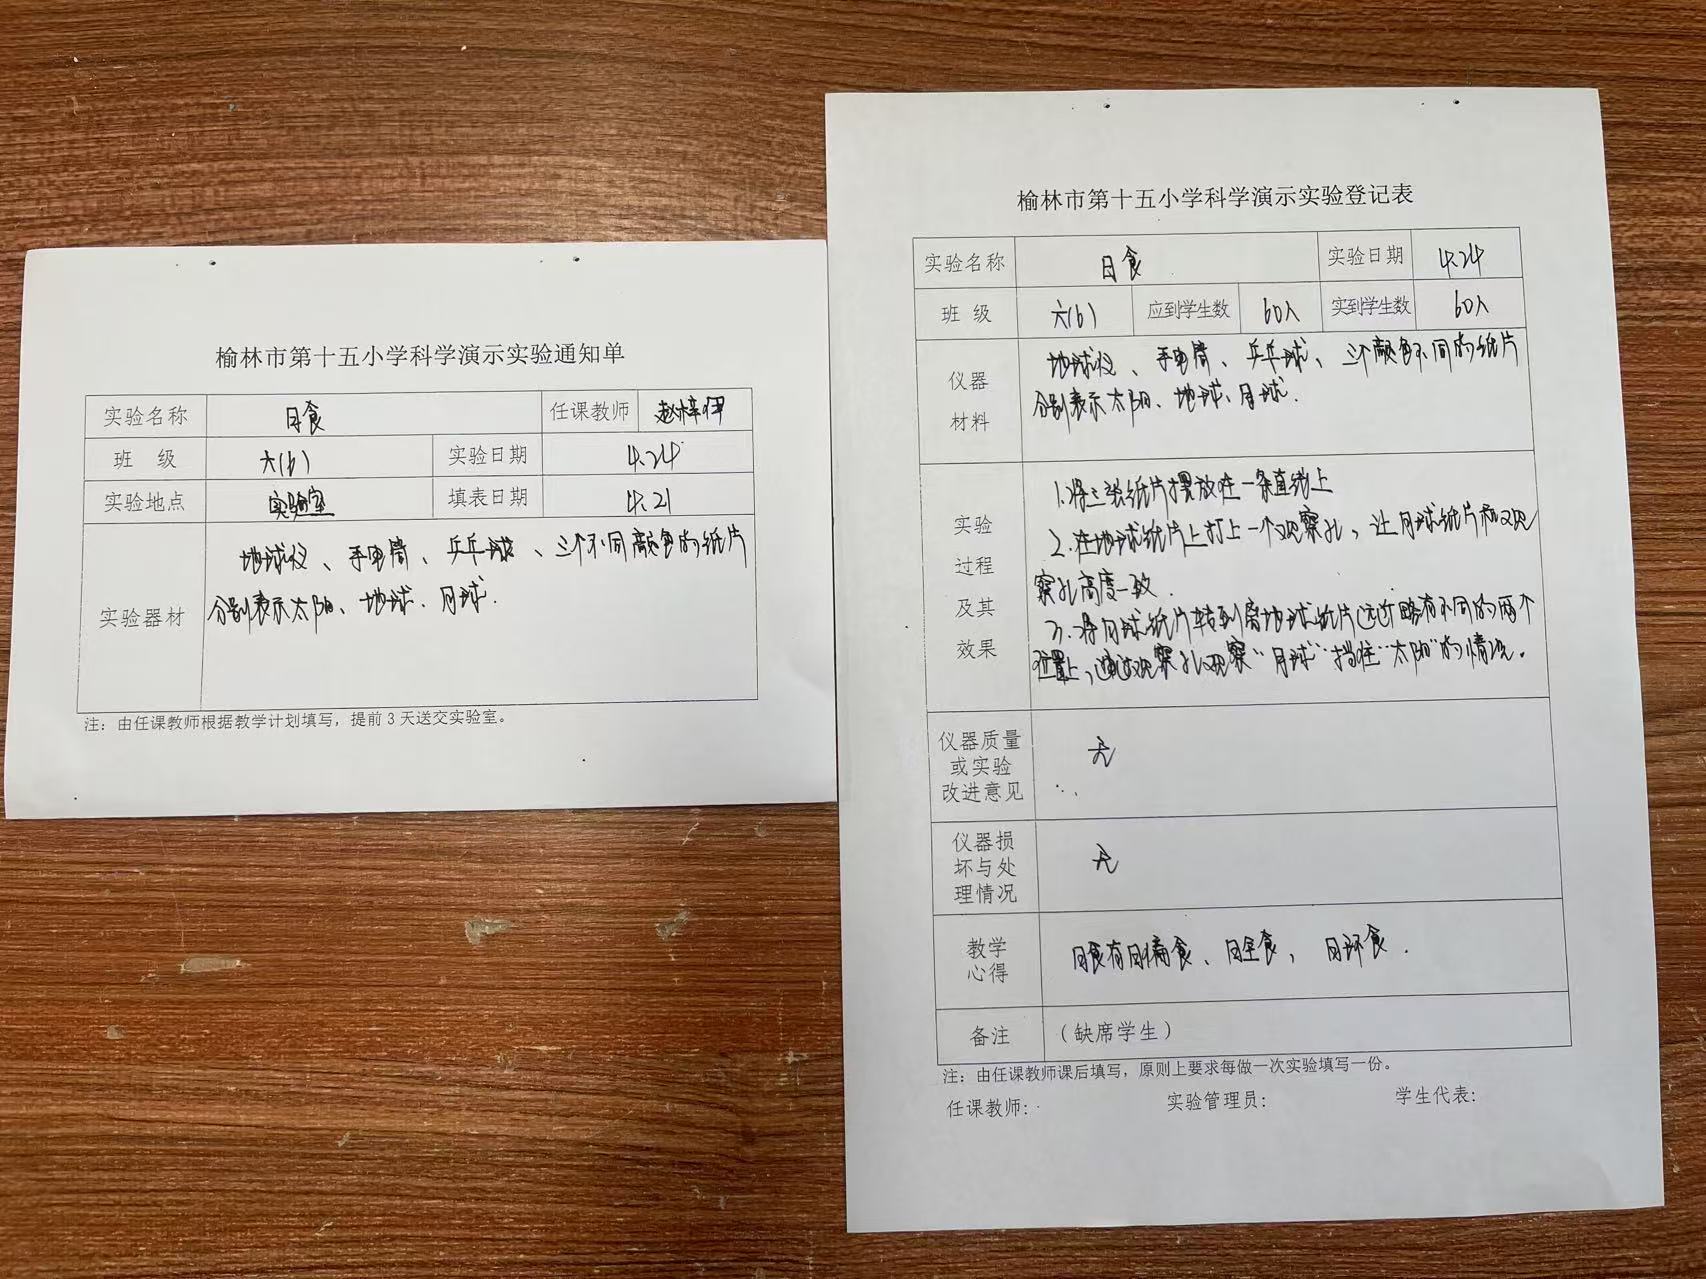 榆林市第十五小学科学演示实验通知单
实验名称 日食 任课教师 赵梓伊
班 级 六(6) 实验日期 4.24
实验地点 实验室 填表日期 4.21
实验器材
地球仪、手电筒、乒乓球、三个不同颜色的纸片
分别表示太阳、地球、月球.
注：由任课教师根据教学计划填写，提前3天送交实验室。
榆林市第十五小学科学演示实验登记表
实验名称 日食 实验日期 4.24
班 级 六(6) 应到学生数 60人 实到学生数 60人
仪器
材料
地球仪、手电筒、乒乓球、三个颜色不同的纸片
分别表示太阳、地球、月球.
实验
过程
及其
效果
1.将三张纸片摆放在一条直线上
2.在地球纸片上打上一个观察孔，让月球纸片和观
察孔高度一致.
3.将月球纸片转到离地球纸片远近略有不同的两个
位置上，通过观察孔观察“月球”挡住“太阳”的情况。
仪器质量
或实验
改进意见
无
仪器损
坏与处
理情况
无
教学
心得
日食有日偏食、日全食，日环食.
备注 （缺席学生）
注：由任课教师课后填写，原则上要求每做一次实验填写一份。
任课教师： 实验管理员： 学生代表：